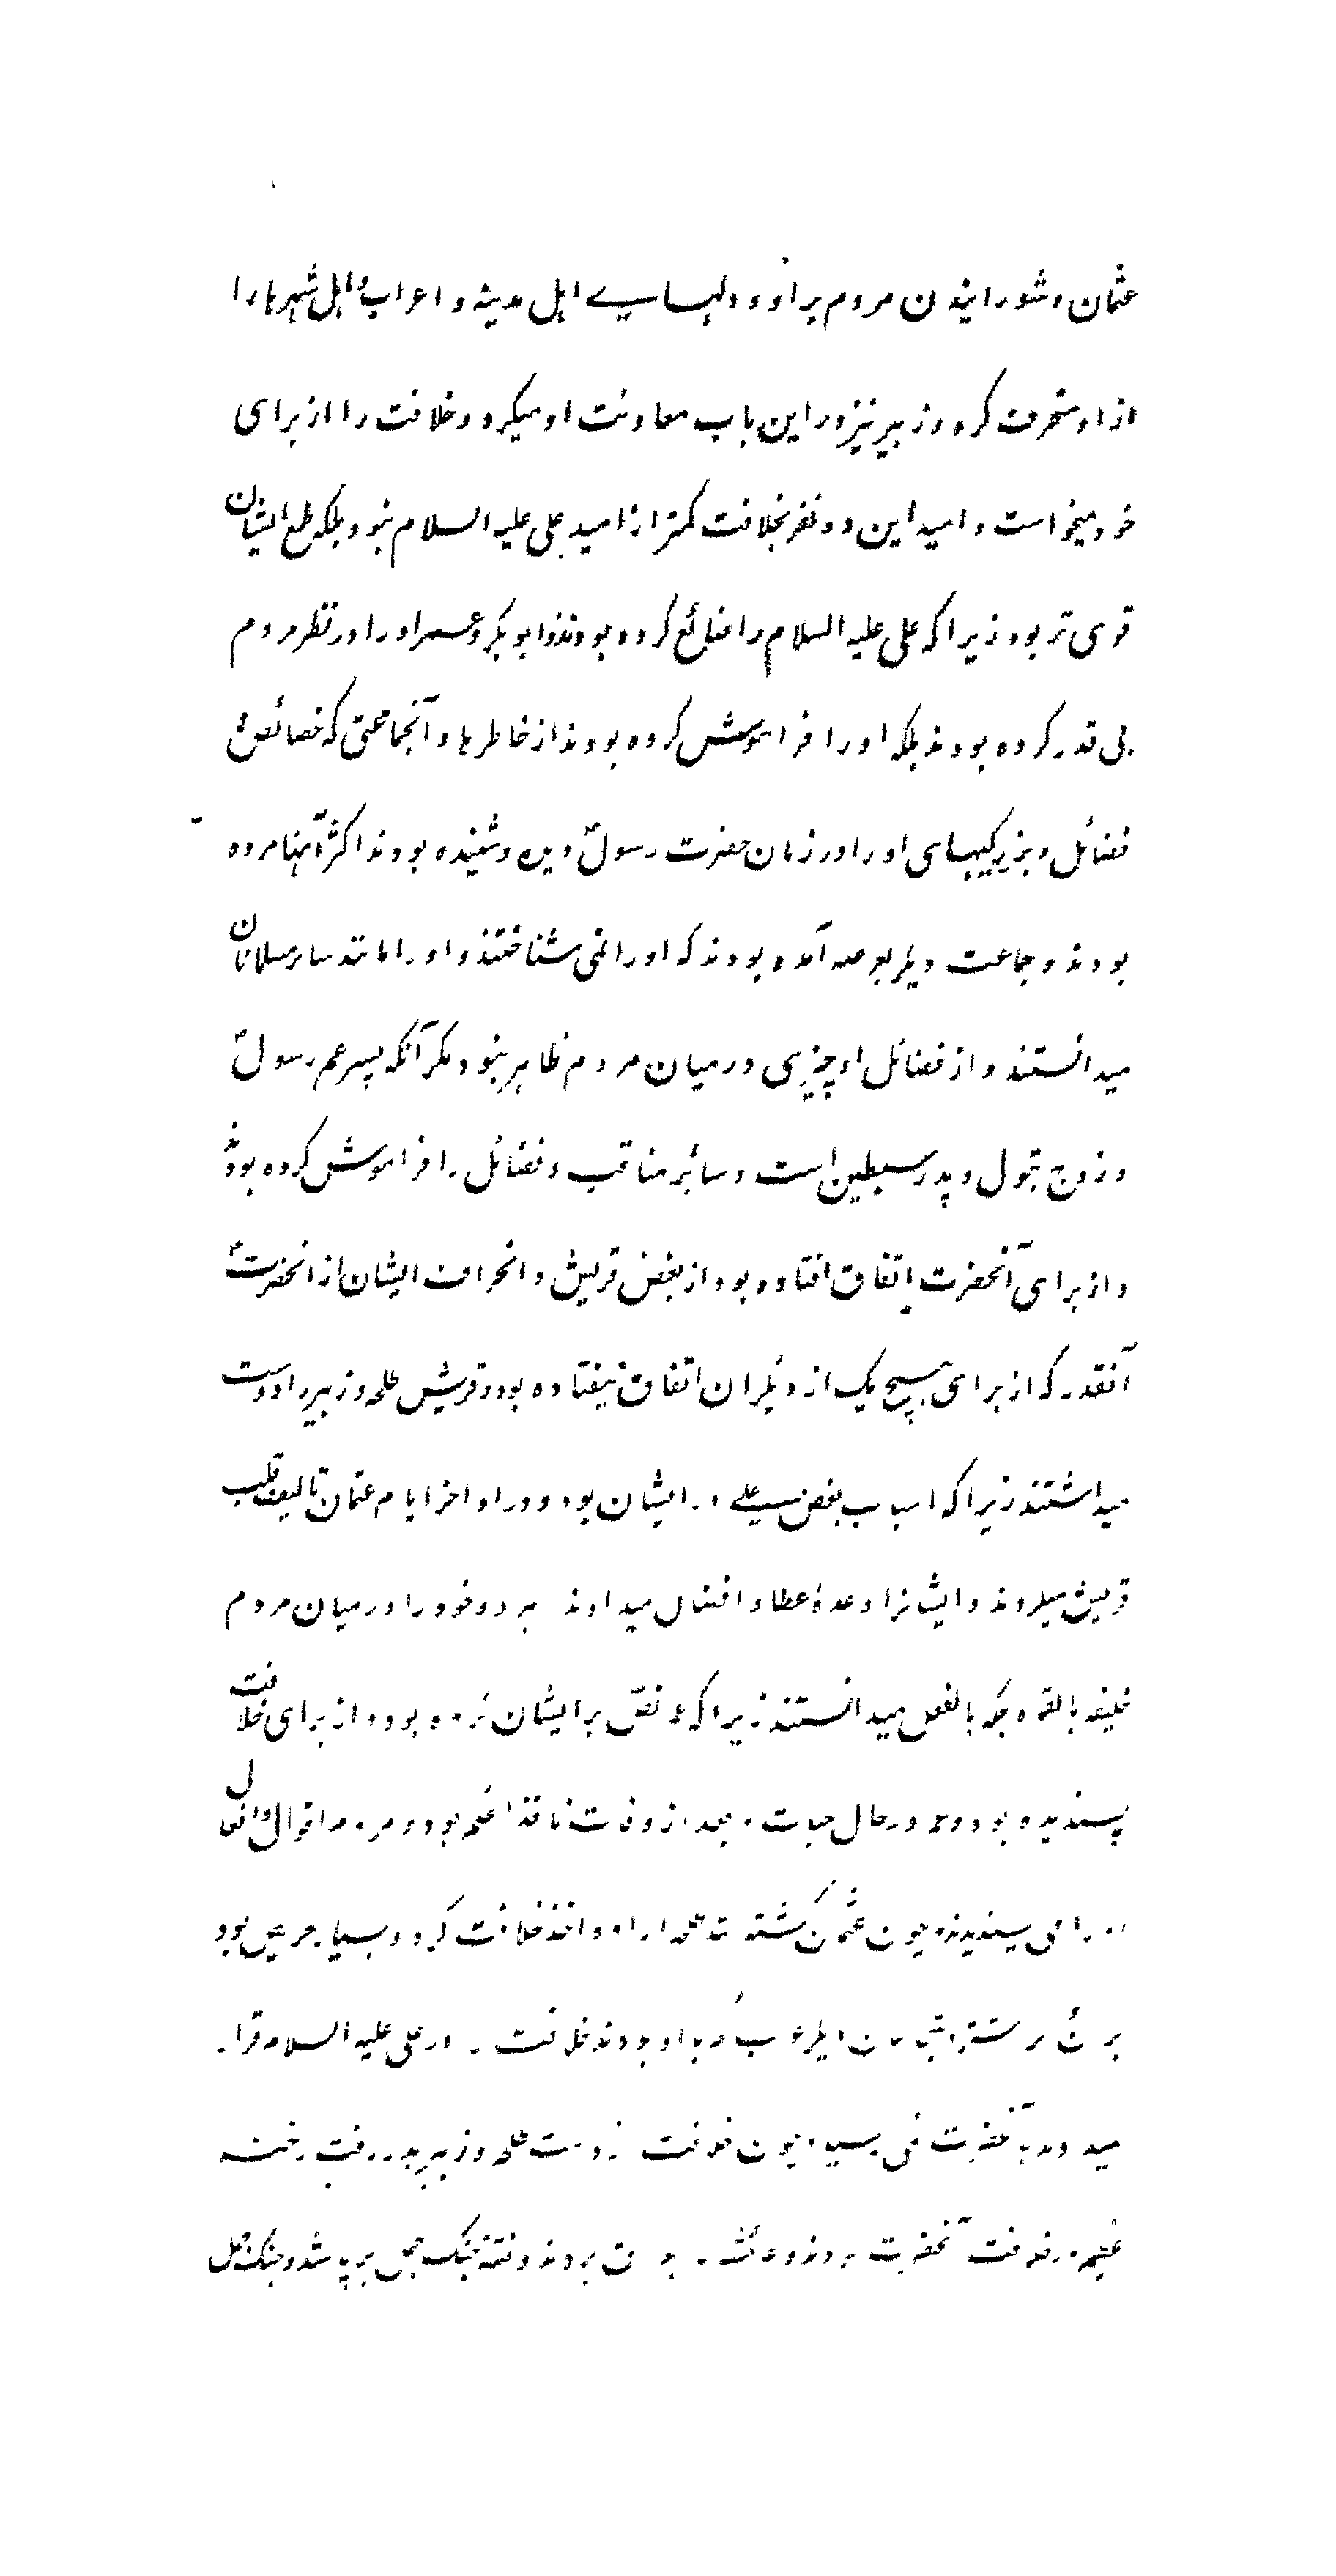 عثمان و شورانیدن مردم بر او و دلهای اهل مدینه و اعراب و اهل شهرها را
از او منحرف کرد و زبیر نیز در این باب معاونت او میکرد و خلافت را از برای
خود میخواست و امید این دو نفر بخلافت کمتر از امید علی علیه السلام نبود بلکه طمع ایشان
قوی تر بود زیرا که علی علیه السلام را ضائع کرده بودند و ابوبکر و عمر او را در نظر مردم
بی قدر کرده بودند بلکه او را فراموش کرده بودند از خاطرها و آنجماعتی که خصائص و
فضائل و بزرگیهای او را در زمان حضرت رسول دیده و شنیده بودند اکثر آنها مرده
بودند و جماعت دیگر بعرصه آمده بودند که او را نمی شناختند و او را مانند سایر مسلمانان
میدانستند و از فضائل او چیزی در میان مردم ظاهر نبود مگر آنکه پسر عم رسول
و زوج بتول و پدر سبطین است و سائر مناقب و فضائل را فراموش کرده بودند
و از برای آنحضرت اتفاق افتاده بود از بغض قریش و انحراف ایشان از آنحضرت
آنقدر که از برای هیچ یک از دیگران اتفاق نیفتاده بود و قریش طلحه و زبیر را دوست
میداشتند زیرا که اسباب بغض علی در ایشان بود و در اواخر ایام عثمان تالیف قلب
قریش میکردند و ایشانرا وعدهٔ عطا و افضال میدادند هر دو خود را در میان مردم
خلیفه بالقوه بلکه بالفعل میدانستند زیرا که عمر نص بر ایشان کرده بود و از برای خلافت
پسندیده بود و عمر در حال حیات و بعد از وفات نافذ الحکم بود و مردم اقوال و افعال
او را می پسندیدند و چون عثمان کشته شد طلحه اراده اخذ خلافت کرد و بسیار حریص بود
بر آن خلافت در علی علیه السلام قرار
آنحضرت نمی رسید و چون خلافت از دست طلحه و زبیر بدر رفت رخنه
عظیم در خلافت آنحضرت کردند و عائشه بردند و فتنه جنگ جمل برپا شد و جنگ جمل